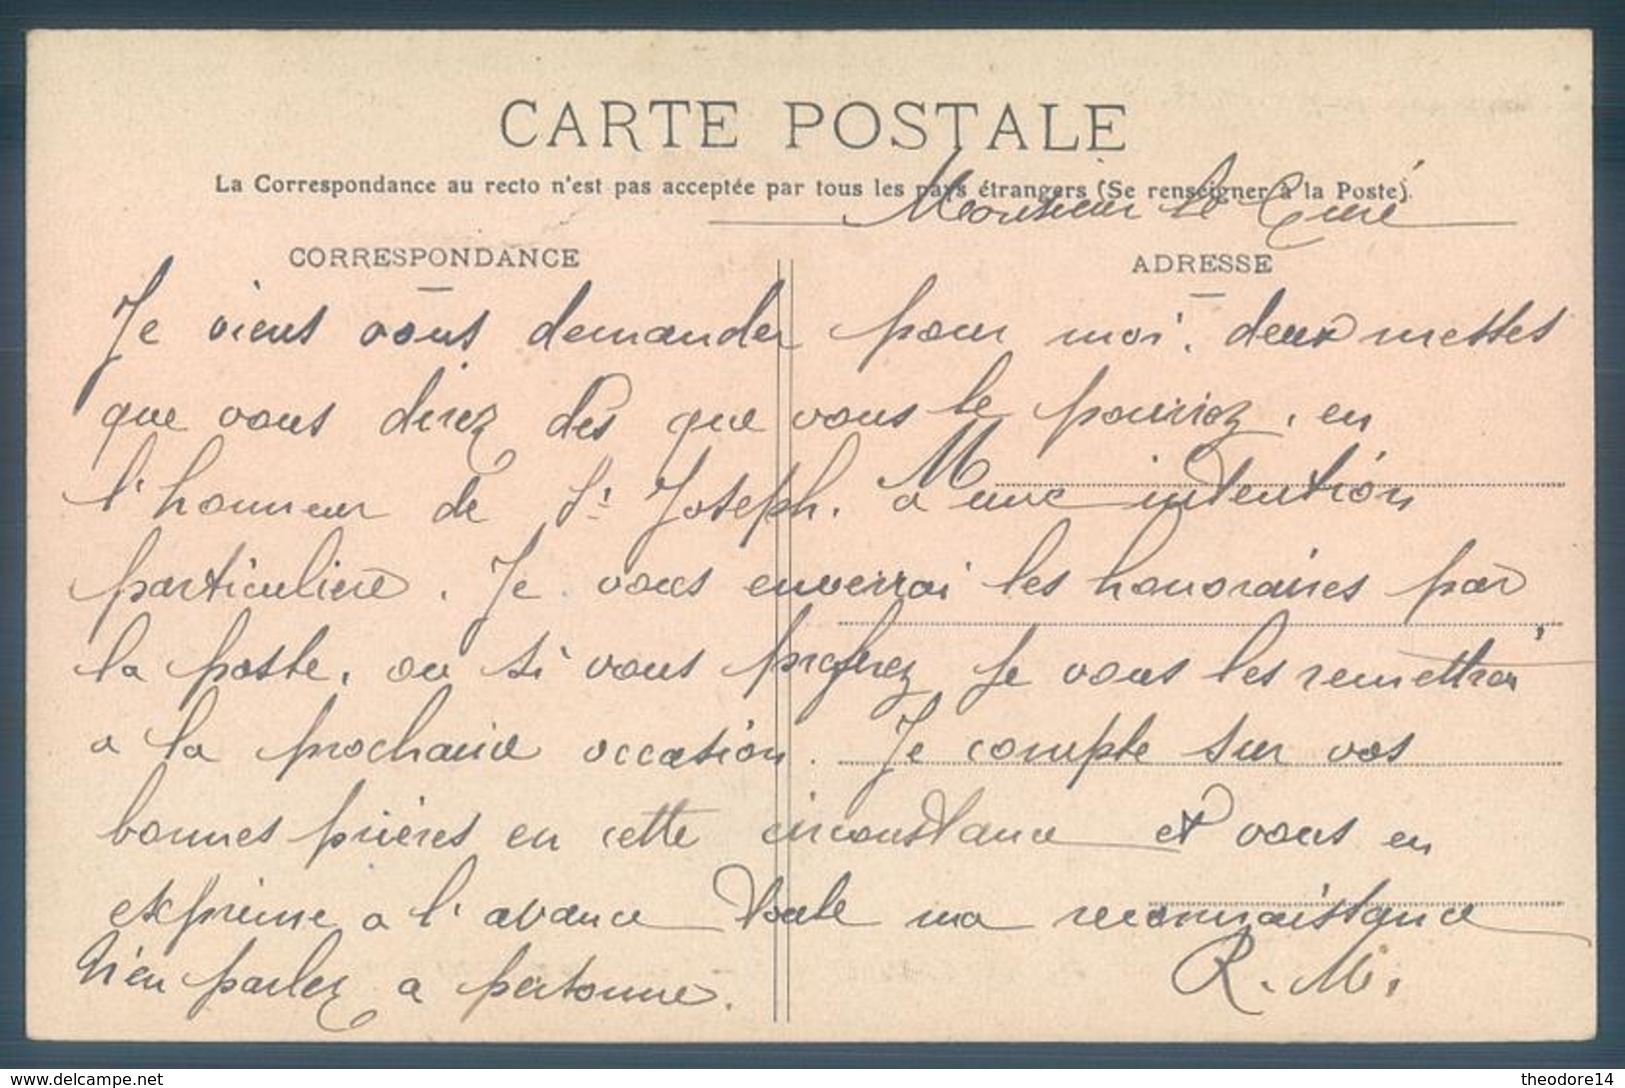 CARTE POSTALE
La Correspondance au recto n'est pas acceptée par tous les pays étrangers (Se renseigner à la Poste).
Monsieur le Curé
CORRESPONDANCE
ADRESSE
Je viens vous demander pour moi, deux messes
que vous direz dès que vous le pourriez, en
M
l'honneur de St Joseph. a une intention
particulière. Je vous enverrai les honoraires par
la poste, ou si vous préférez je vous les remettrai
a la prochaine occasion. Je compte sur vos
bonnes prières en cette circonstance et vous en
exprime a l'avance toute ma reconnaissance
N'en parlez a personne.
R. M.
delcampe.net
theodore14